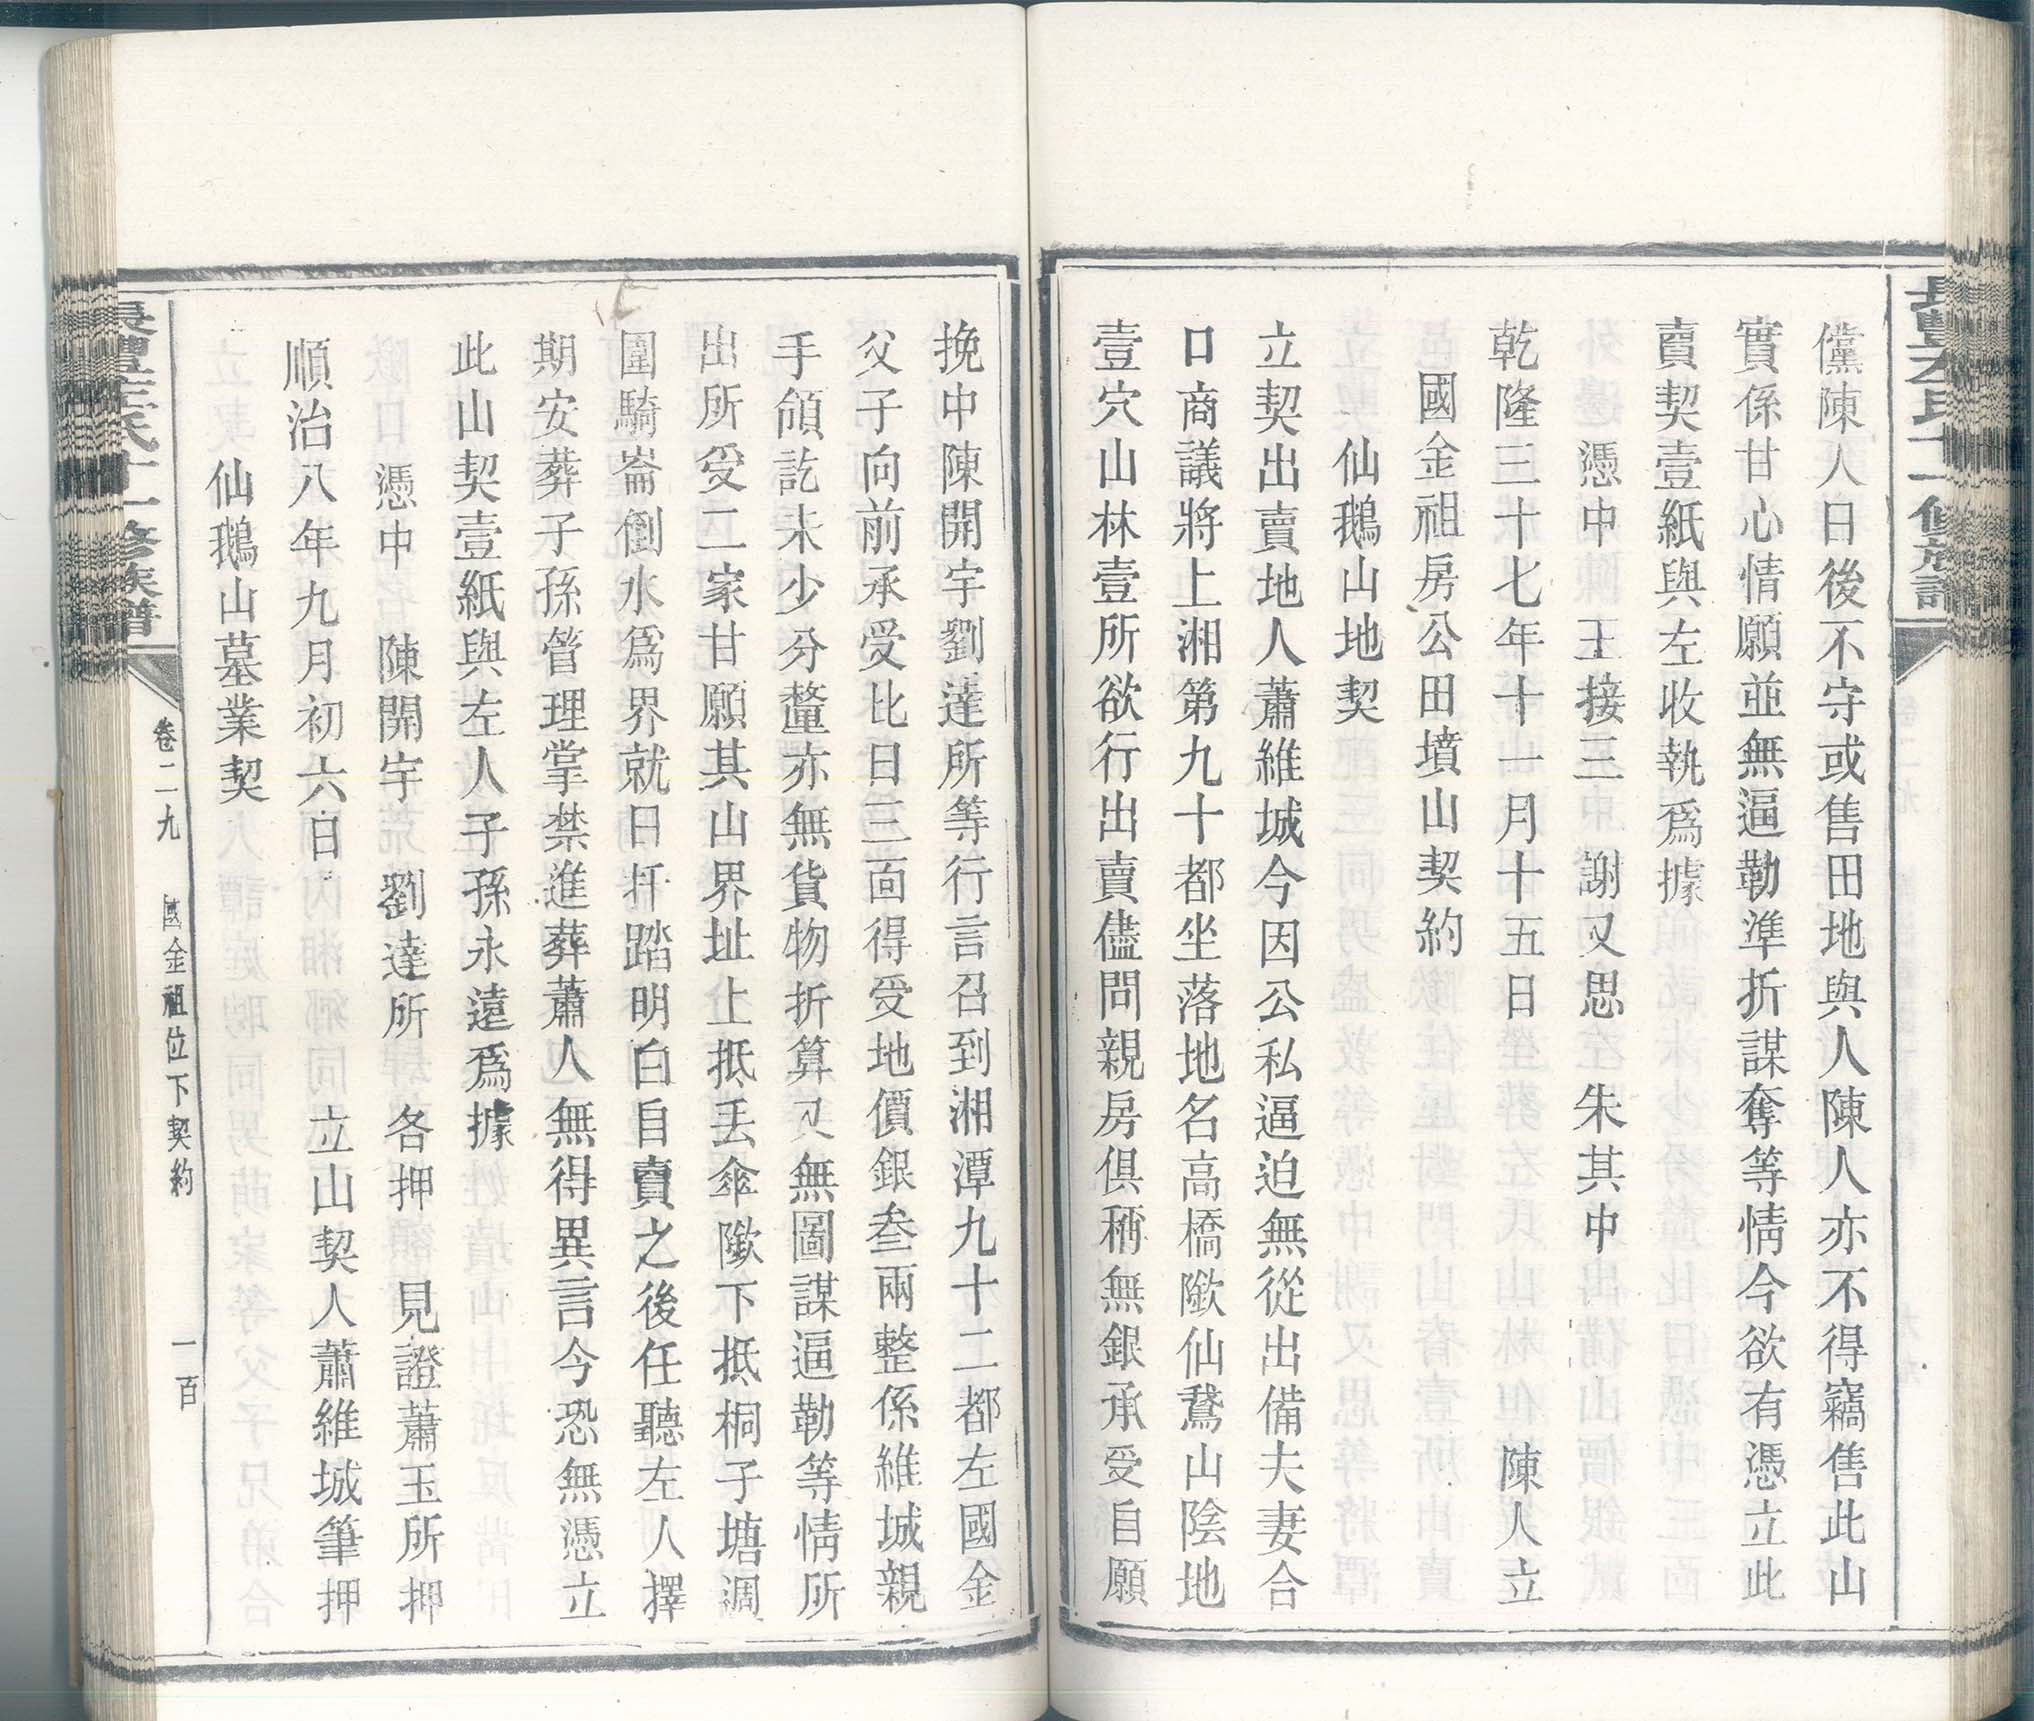 長豐左氏十一修族譜
儻陳人日後不守或售田地與人陳人亦不得竊售此山
實係甘心情願並無逼勒準折謀奪等情今欲有憑立此
賣契壹紙與左收執爲據
憑中 王接三 謝又思 朱其中
乾隆三十七年十一月十五日 陳人立
國金祖房公田墳山契約
仙鵝山地契
立契出賣地人蕭維城今因公私逼迫無從出備夫妻合
口商議將上湘第九十都坐落地名高橋隞仙鵞山陰地
壹穴山林壹所欲行出賣儘問親房俱稱無銀承受自願
挽中陳開宇劉達所等行言召到湘潭九十二都左國金
父子向前承受比日三面得受地價銀叁兩整係維城親
手領訖未少分釐亦無貨物折算又無圖謀逼勒等情所
出所受二家甘願其山界址上抵丢傘隞下抵桐子塘凋
圍騎崙倒水爲界就日扦踏明白自賣之後任聽左人擇
期安葬子孫管理掌禁進葬蕭人無得異言今恐無憑立
此山契壹紙與左人子孫永遠爲據
憑中 陳開宇 劉達所 各押 見證蕭玉所押
順治八年九月初六日 立山契人蕭維城筆押
仙鵝山墓業契
長豐左氏十一修族譜
卷二九 國金祖位下契約 一百